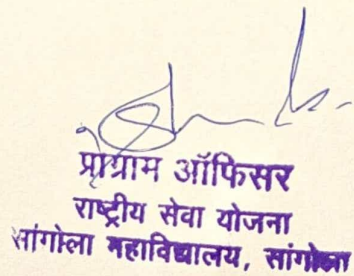 प्रोग्राम ऑफिसर
राष्ट्रीय सेवा योजना
सांगोला महाविद्यालय, सांगोला